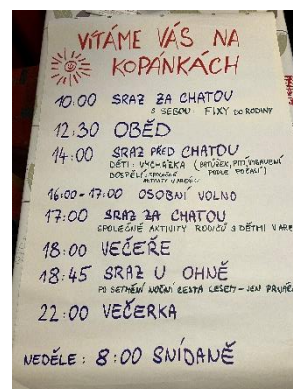 VÍTÁME VÁS NA
KOPÁNKÁCH
10:00 SRAZ ZA CHATOU
S SEBOU FIXY DO RODINY
12:30 OBĚD
14:00 SRAZ PŘED CHATOU
DĚTI: VYCHÁZKA (BATŮŽEK, PITÍ, VYBAVENÍ
DOSPĚLÍ: SPOLEČNÉ PODLE POČASÍ)
AKTIVITY V AREÁLU
16:00-17:00 OSOBNÍ VOLNO
17:00 SRAZ ZA CHATOU
SPOLEČNÉ AKTIVITY RODIČŮ S DĚTMI V ARE
18:00 VEČEŘE
18:45 SRAZ U OHNĚ
PO SETMĚNÍ NOČNÍ CESTA LESEM - JEN
22:00 VEČERKA
NEDĚLE: 8:00 SNÍDANĚ